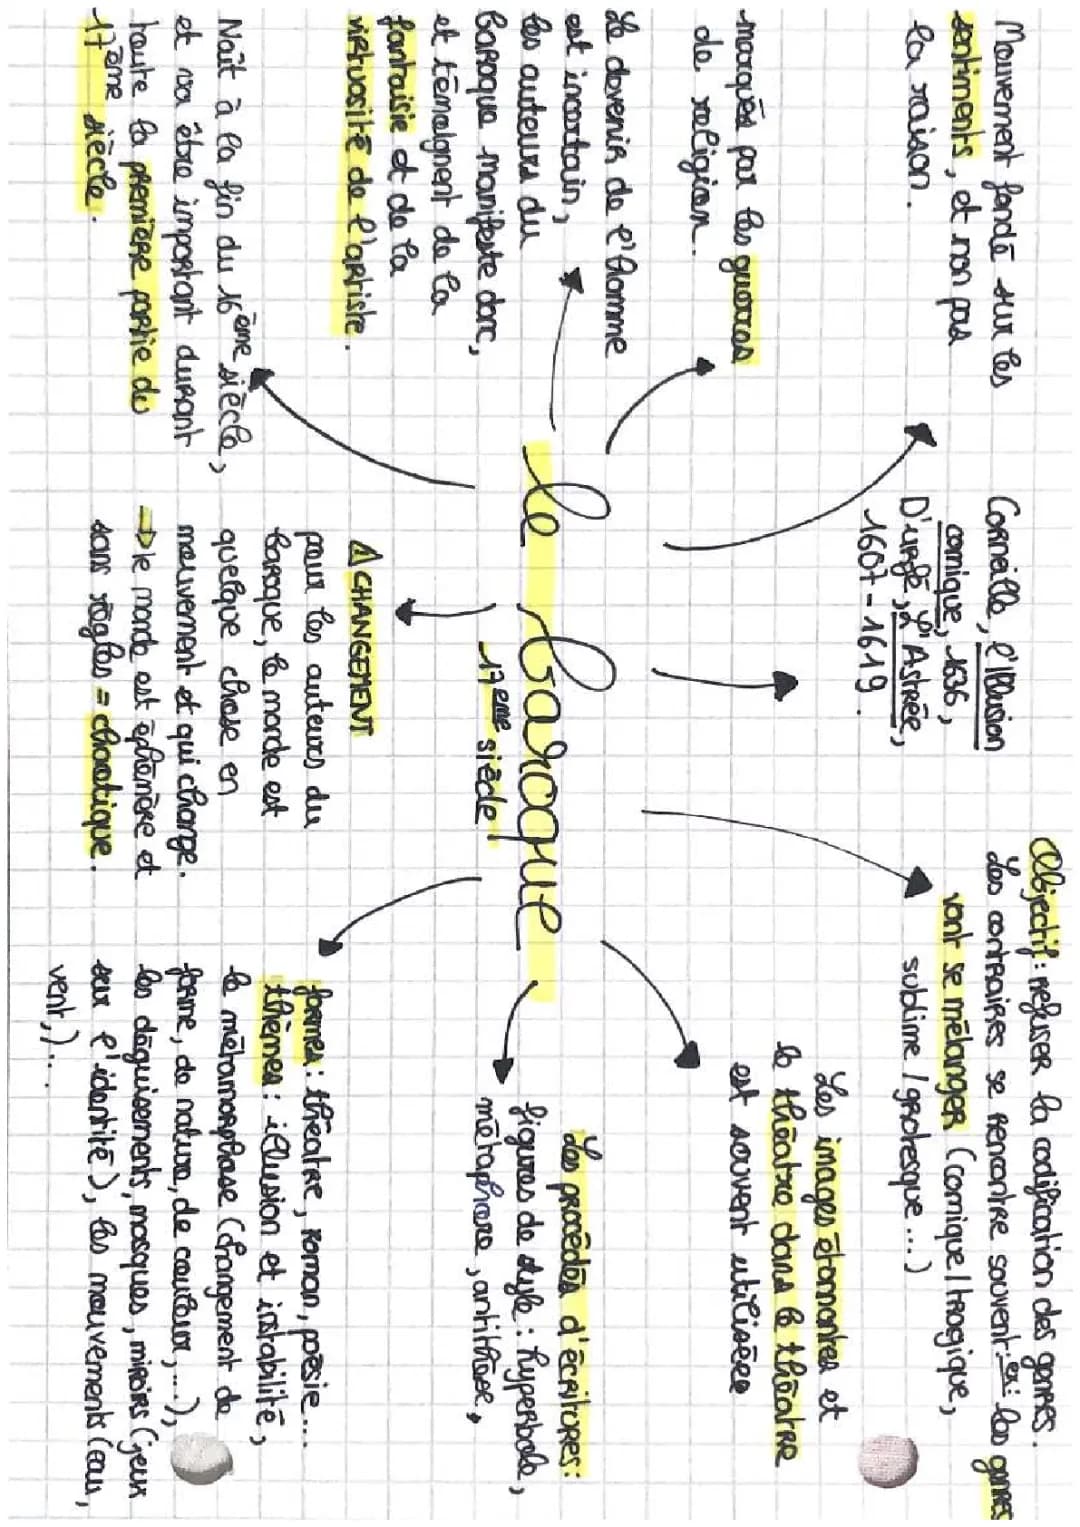 Le baroque
17ème siècle
Mouvement fondé sur les
sentiments, et non pas
la raison.
marqués par les guerres
de religion.
Le devenir de l'Homme
est incertain,
les auteurs du
baroque manifeste donc,
et témoignent de la
fantaisie et de la
virtuosité de l'artiste.
Naît à la fin du 16ème siècle,
et va être important durant
toute la première partie du
17ème siècle.
Corneille, l'Illusion
comique, 1636,
D'urfé, L'Astrée,
1607-1619.
CHANGEMENT
pour les auteurs du
baroque, le monde est
quelque chose en
mouvement et qui change.
→ le monde est éphémère et
sans règles = chaotique.
Objectif : refuser la codification des genres.
Les contraires se rencontre souvent : ex : les genres
vont se mélanger (comique/tragique,
sublime/grotesque...)
Les images étonnantes et
le théâtre dans le théâtre
est souvent utilisées
Les procédés d'écritures :
figures de style : hyperbole,
métaphore, antithèse,
formes : théatre, roman, poésie...
thèmes : illusion et instabilité,
la métamorphose (changement de
forme, de nature, de couleur,...),
les déguisements, masques, miroirs (jeux
sur l'identité), les mouvements (eau,
vent,)...